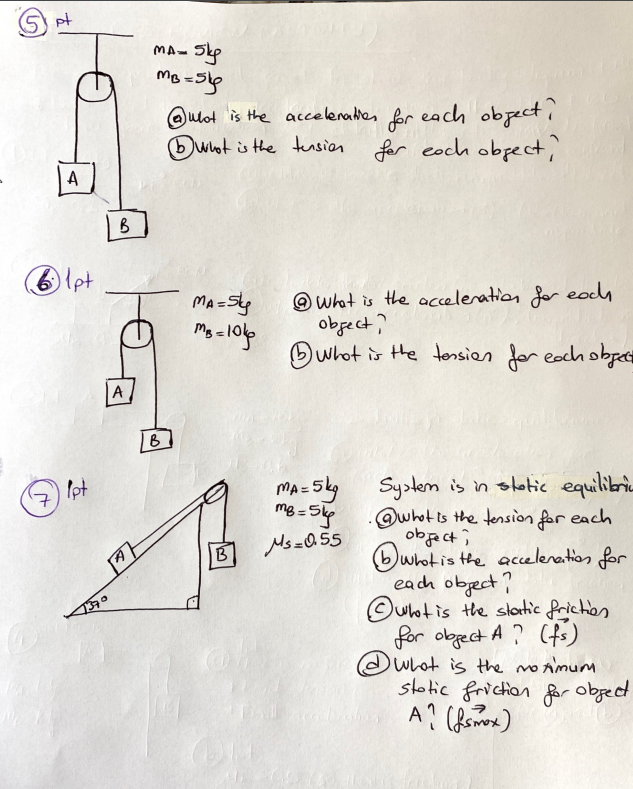 5 pt
mA = 5kg
mB = 5kg
(a) What is the acceleration for each object?
(b) What is the tension for each object?
A
B
6 1pt
mA = 5kg
mB = 10kg
(a) What is the acceleration for each
object?
(b) What is the tension for each object
A
B
7 1pt
mA = 5kg
mB = 5kg
μs = 0.55
System is in static equilibriu
(a) What is the tension for each
object?
(b) What is the acceleration for
each object?
(c) What is the static friction
for object A? (fs)
(d) What is the maximum
static friction for object
A? (fsmax)
A
B
37°